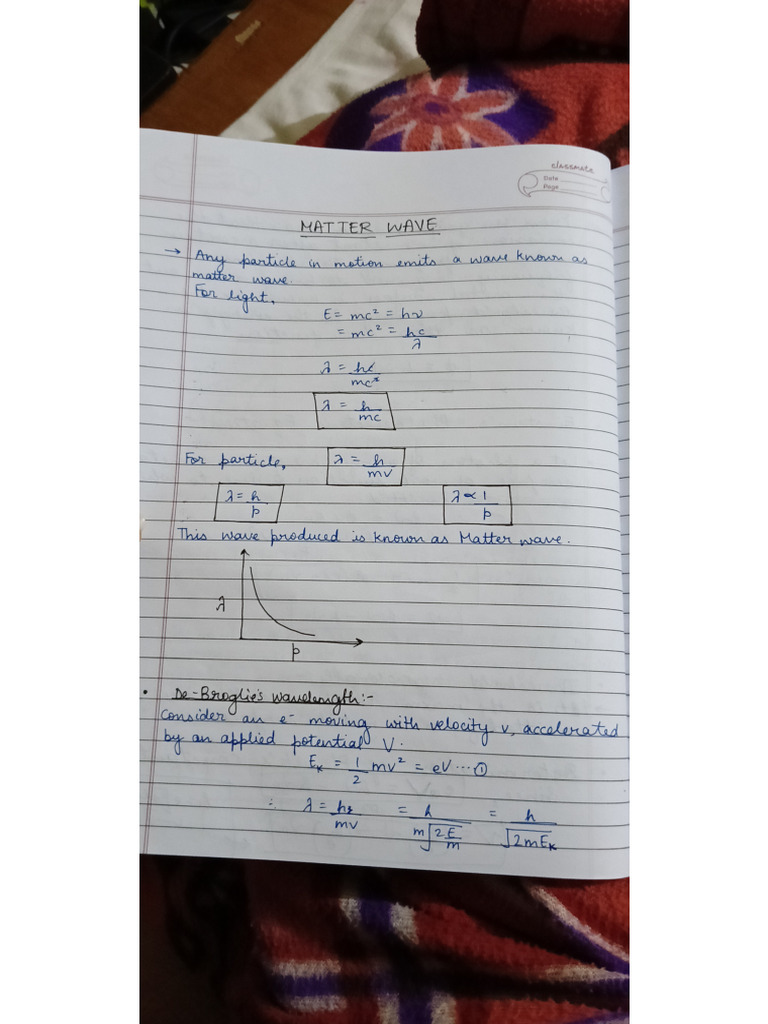 classmate
Date
Page
MATTER WAVE
→ Any particle in motion emits a wave known as
matter wave.
For light,
E = mc² = hν
= mc² = hc/λ
λ = hc/mc²
λ = h/mc
For particle, λ = h/mv
λ = h/p λ ∝ 1/p
This wave produced is known as Matter wave.
λ
p
• De-Broglie's wavelength:-
Consider an e⁻ moving with velocity v, accelerated
by an applied potential V.
E_K = 1/2 mv² = eV ... ①
∴ λ = h/mv = h/m√(2E/m) = h/√(2mE_K)